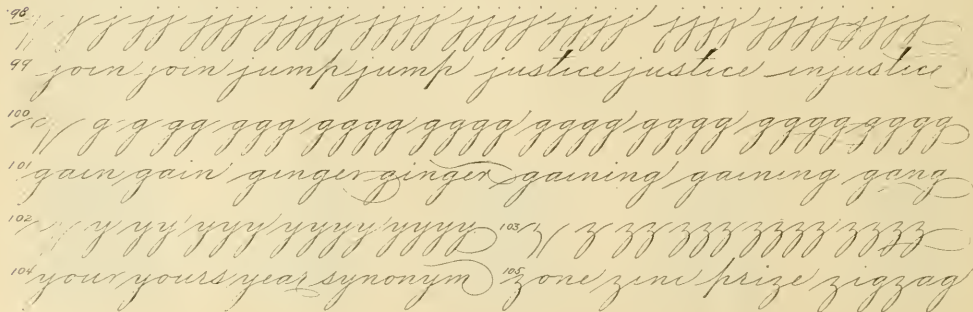 98 j j jj jjj jjjj jjjj jjjj jjjj jjjj jjjjjjjj
99 join join jump jump justice justice injustice
100 g g gg ggg gggg gggg gggg gggg gggggggg
101 gain gain ginger ginger gaining gaining gang
102 y yy yyy yyyy yyyy 103 z zz zzzz zzzz zzzz
104 your yours year synonym 105 zone zinc prize zigzag